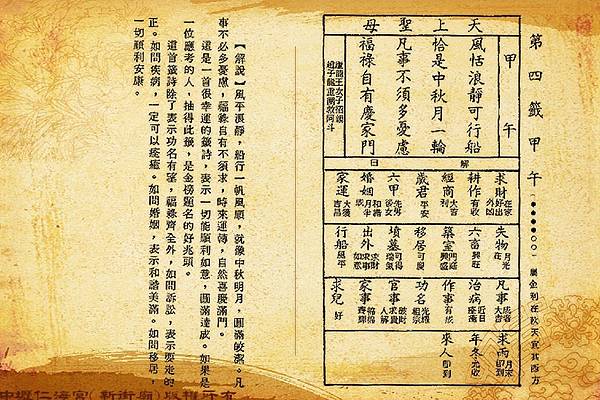 第四籤 甲午 屬金利在秋天宜其西方
天上聖母
甲午
風恬浪靜可行船
恰是中秋月一輪
凡事不須多憂慮
福祿自有慶家門
趙子龍重圍救阿斗
解曰
求財
耕作 有收
經商 大吉利
歲君 平安
六甲 先男後女
婚姻
家運 大發吉昌
失物 月光
六畜 興旺
築室
移居
墳墓 可得瑞氣
出外 求財求事如意
行船 風平
凡事 大吉
治病 近日
作事 有成
功名 光耀祖宗
官事 破財求貴人解
家事
求兒 好
求雨 月末即到
年冬 允收
來人 即到
【解說】風平浪靜，船行一帆風順，就像中秋明月，圓滿皎潔。凡
事不必多憂慮，福祿自有不須求，時來運轉，自然喜慶滿門。
這是一首很幸運的籤詩，表示一切能順利如意，圓滿達成。如果是
一位應考的人，抽得此籤，是金榜題名的好兆頭。
這首籤詩除了表示功名有望，福祿齊全外，如問訴訟，表示要走的
正。如問疾病，一定可以痊癒。如問婚姻，表示和諧美滿。如問移居，
一切順利安康。
中壢仁海宮(新街廟)版權所有